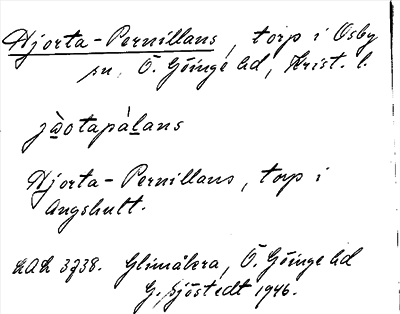 Hjorta-Pernillans, torp i Osby
sn, Ö. Göinge hd, Krist. l.
jàotapàlans
Hjorta-Pernillans, torp i
Angshult.
LAL 3738. Glimåkra, Ö. Göinge hd
G. Sjöstedt 1946.